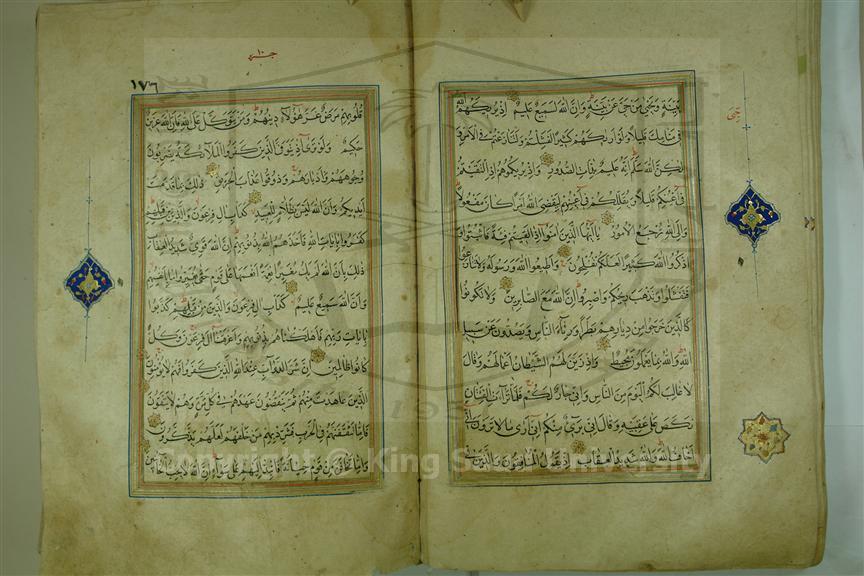 بينة ويحيى من حي عن بينة وان الله لسميع عليم اذ يريكهم الله
في منامك قليلا ولو اراكهم كثيرا لفشلتم ولتنازعتم في الامر و
لكن الله سلم انه عليم بذات الصدور واذ يريكموهم اذ التقيتم
في اعينكم قليلا ويقللكم في اعينهم ليقضي الله امرا كان مفعولا
والى الله ترجع الامور يا ايها الذين امنوا اذا لقيتم فئة فاثبتوا و
اذكروا الله كثيرا لعلكم تفلحون واطيعوا الله ورسوله ولا تنازعوا
فتفشلوا وتذهب ريحكم واصبروا ان الله مع الصابرين ولا تكونوا
كالذين خرجوا من ديارهم بطرا ورئاء الناس ويصدون عن سبيل
الله والله بما يعملون محيط واذ زين لهم الشيطان اعمالهم وقال
لا غالب لكم اليوم من الناس واني جار لكم فلما تراءت الفئتان
نكص على عقبيه وقال اني بريء منكم اني ارى ما لا ترون اني
اخاف الله والله شديد العقاب اذ يقول المنافقون والذين في
جزء ١٠
١٧٦
قلوبهم مرض غر هؤلاء دينهم ومن يتوكل على الله فان الله عزيز
حكيم ولو ترى اذ يتوفى الذين كفروا الملائكة يضربون
وجوههم وادبارهم وذوقوا عذاب الحريق ذلك بما قدمت
ايديكم وان الله ليس بظلام للعبيد كداب ال فرعون والذين من قبلهم
كفروا بايات الله فاخذهم الله بذنوبهم ان الله قوي شديد العقاب
ذلك بان الله لم يك مغيرا نعمة انعمها على قوم حتى يغيروا ما بانفسهم
وان الله سميع عليم كداب ال فرعون والذين من قبلهم كذبوا
بايات ربهم فاهلكناهم بذنوبهم واغرقنا ال فرعون وكل
كانوا ظالمين ان شر الدواب عند الله الذين كفروا فهم لا يؤمنون
الذين عاهدت منهم ثم ينقضون عهدهم في كل مرة وهم لا يتقون
فاما تثقفنهم في الحرب فشرد بهم من خلفهم لعلهم يذكرون
واما تخافن من قوم خيانة فانبذ اليهم على سواء ان الله لا يحب الخائنين
195
Copyright © King Saud University